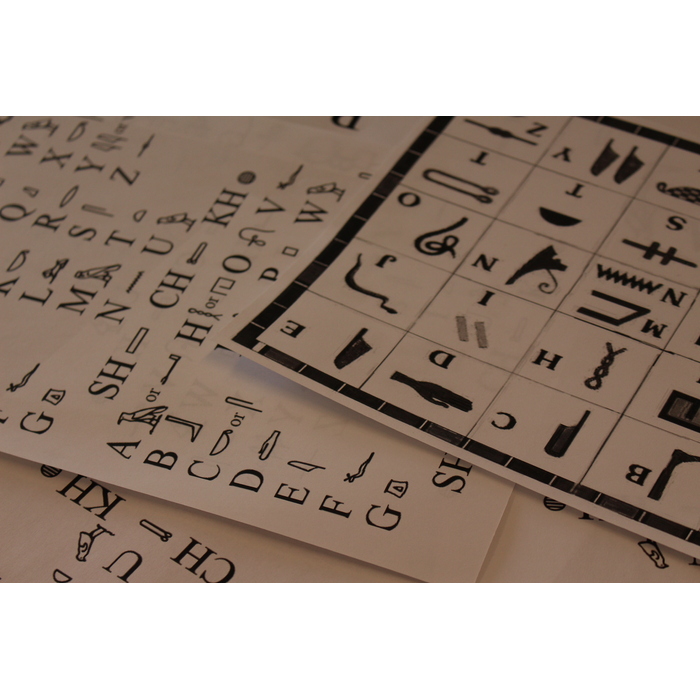 W
X
Y or
Z
Q
R
S
T
U
KH
V
W
L
M
N
CH
H or
O
P
SH
F
G
A or
B
C or
D
E
F
G
SH
KH
U
CH
Z
Y
T
T
S
O
N
N
J
I
M
E
D
H
C
B